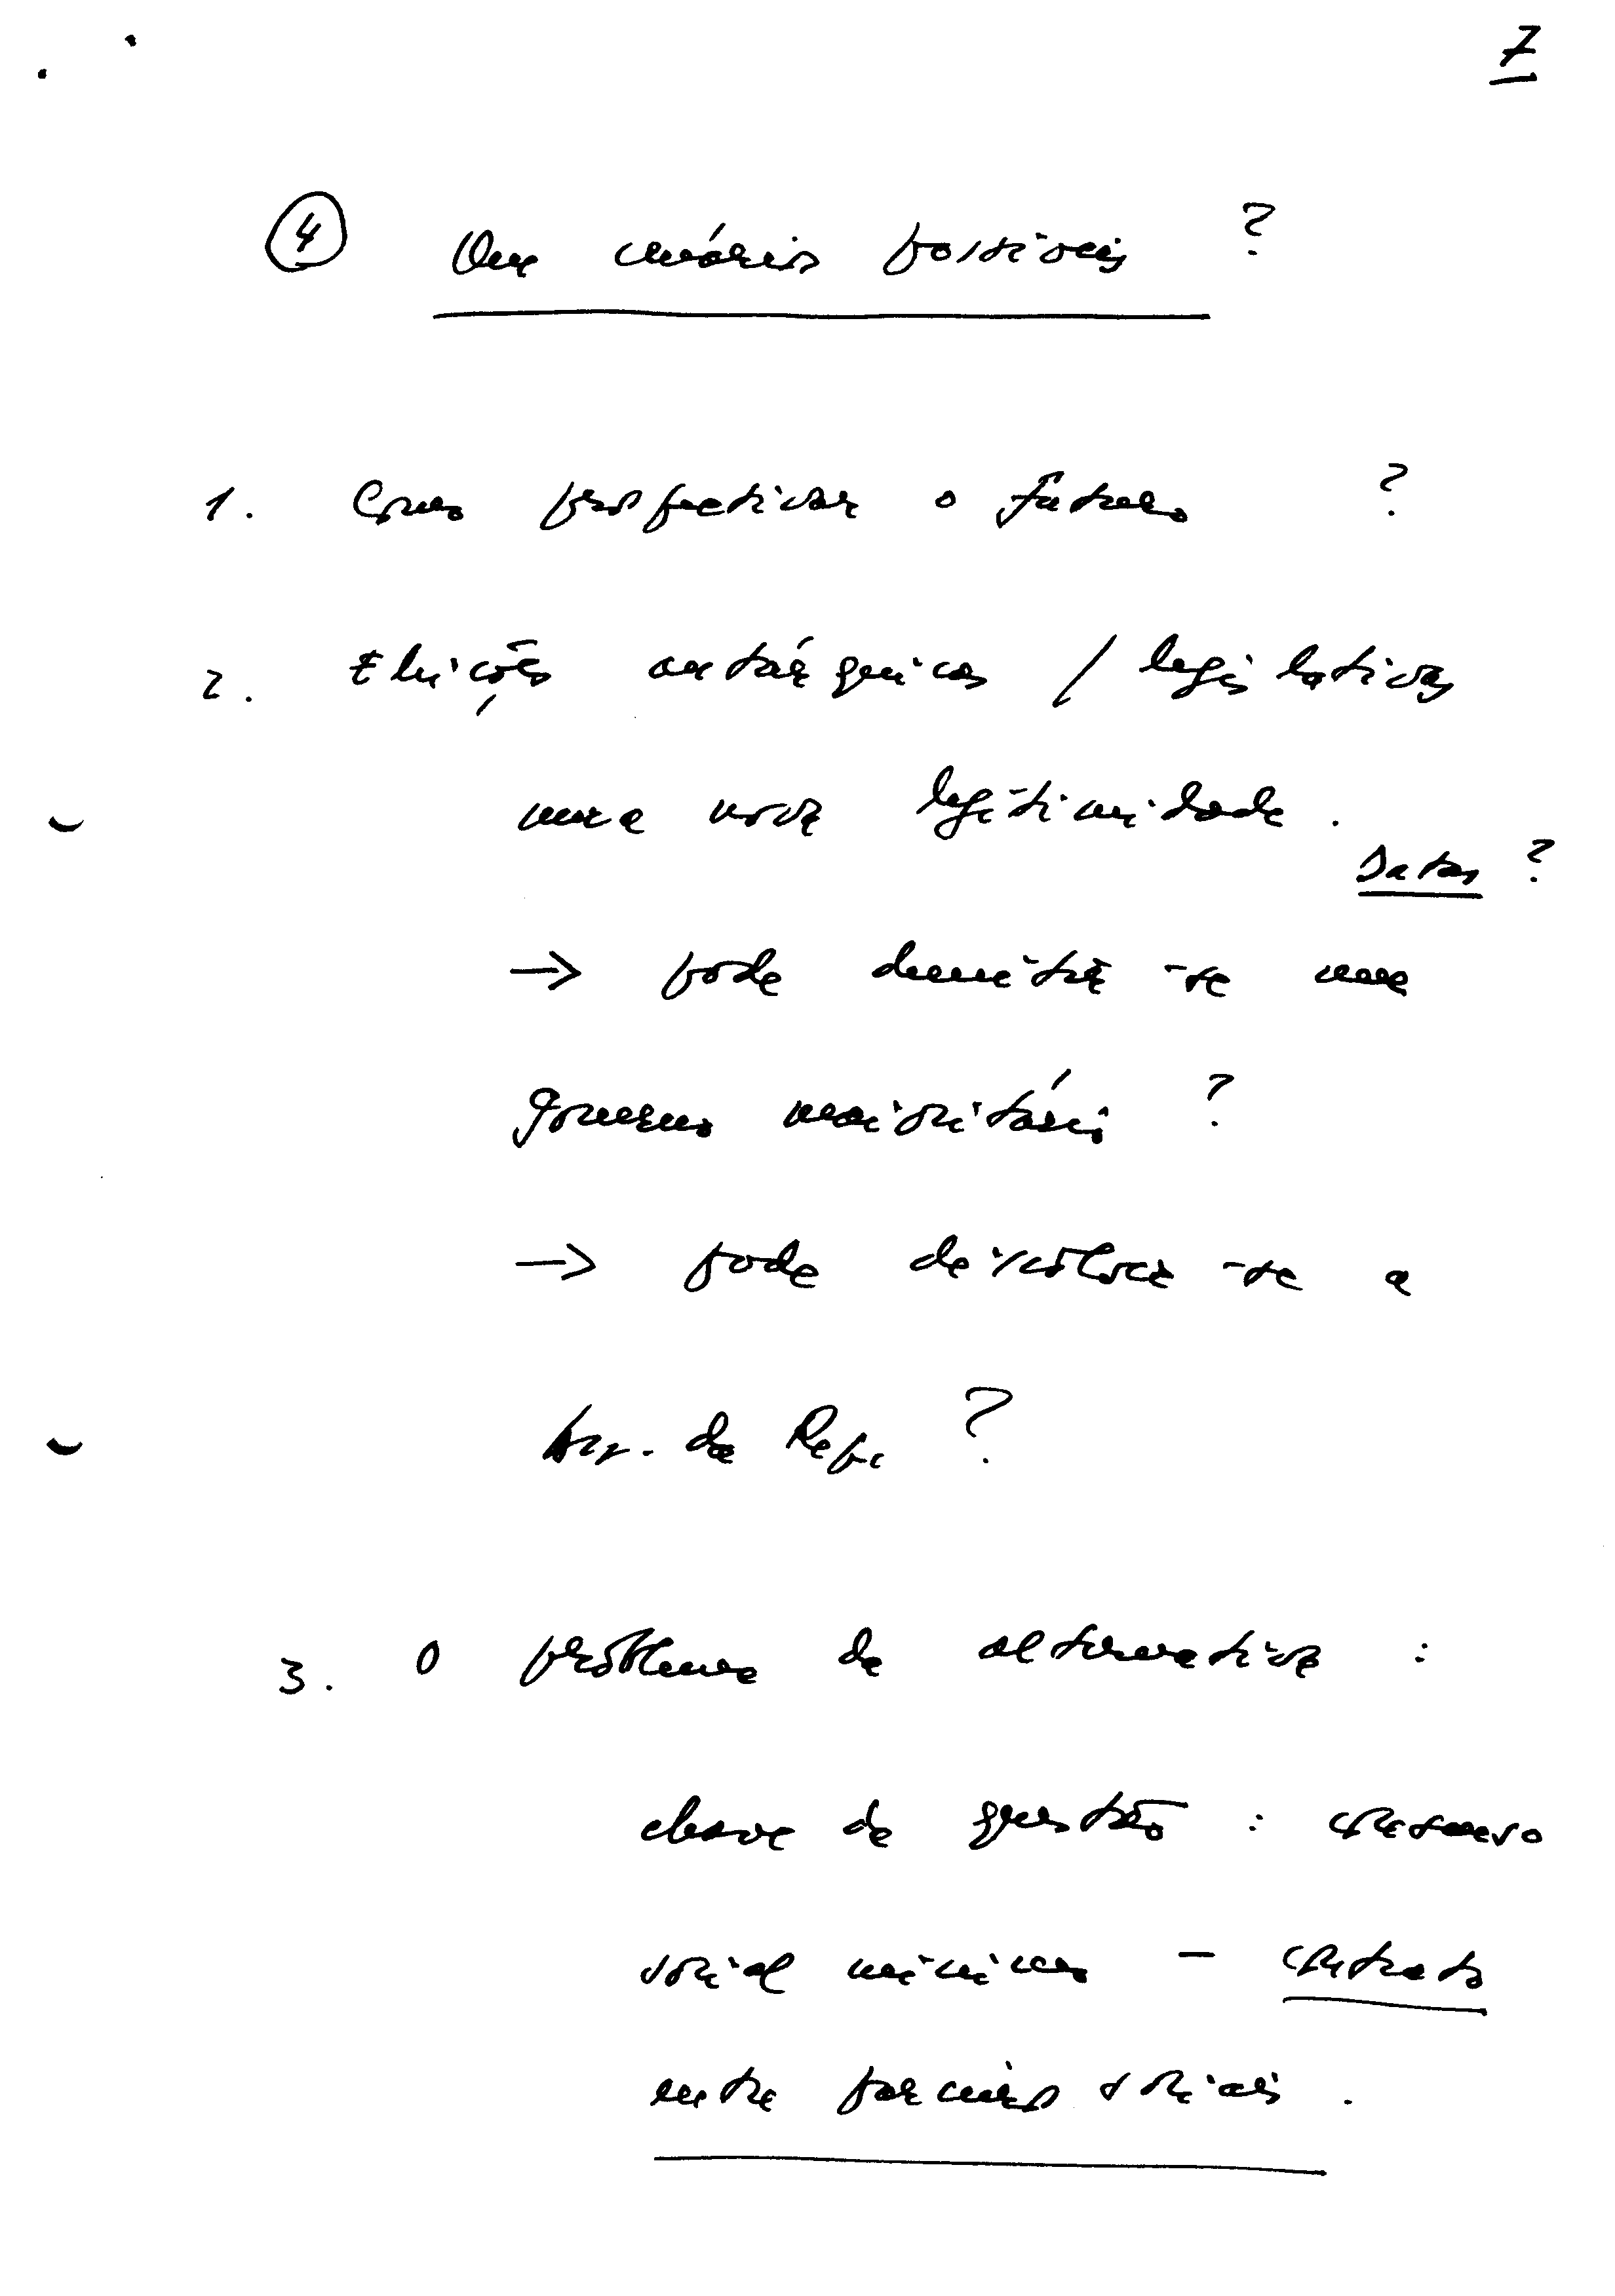 7
4 Que cenários possíveis ?
1. Como prospectivar o futuro ?
2. Eleições autárquicas / legislativas
uma nova legitimidade .
Datas ?
→ pode demitir-se um
governo maioritário ?
→ pode dissolver-se a
Ass. da Rep. ?
3. O problema da alternativa :
chave da questão : consenso
social mínimo - contrato
entre parceiros sociais .